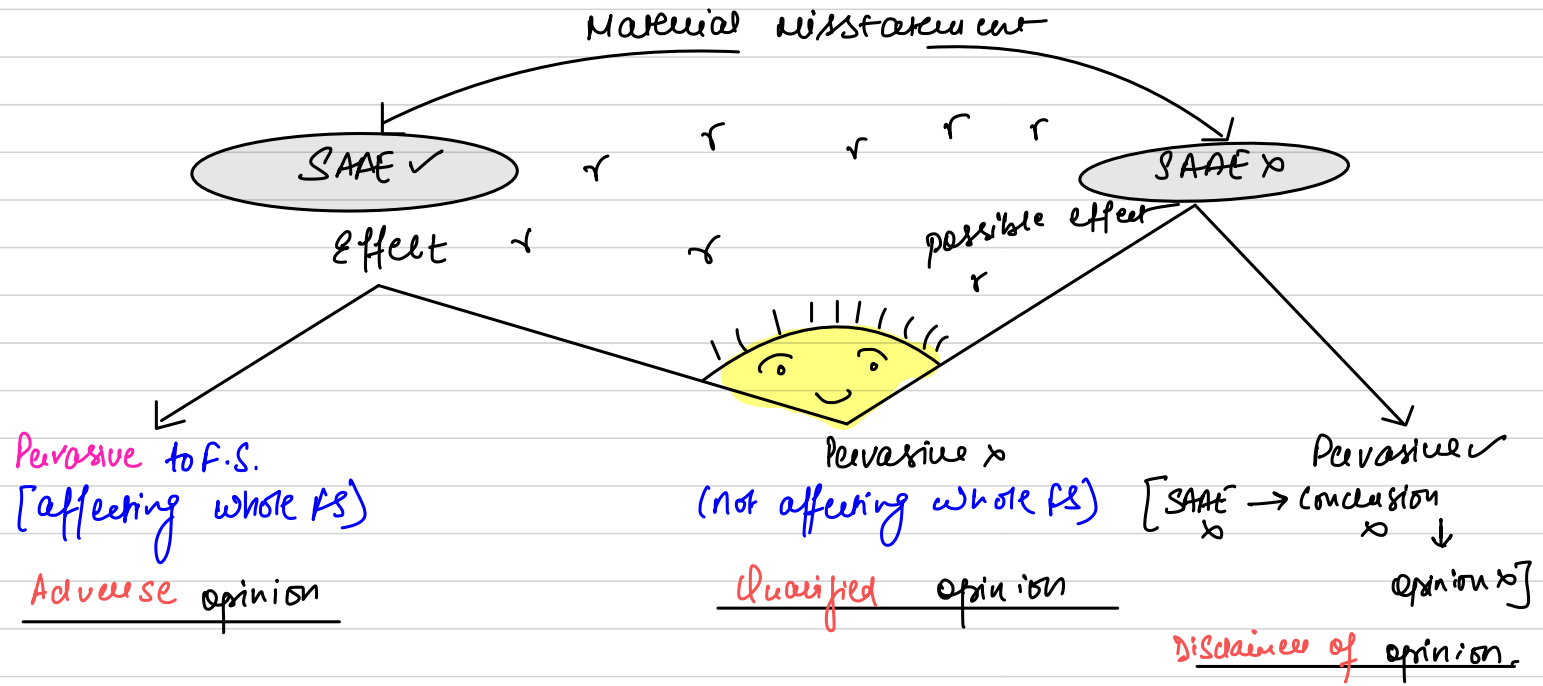 Material Misstatement
SAAE ✓
SAAE ×
Effect
possible effect
Pervasive to F.S.
[affecting whole FS)
Adverse opinion
Pervasive ×
(not affecting whole FS)
Qualified opinion
Pervasive ✓
[SAAE → Conclusion
× × ↓
opinion ×]
Disclaimer of opinion.